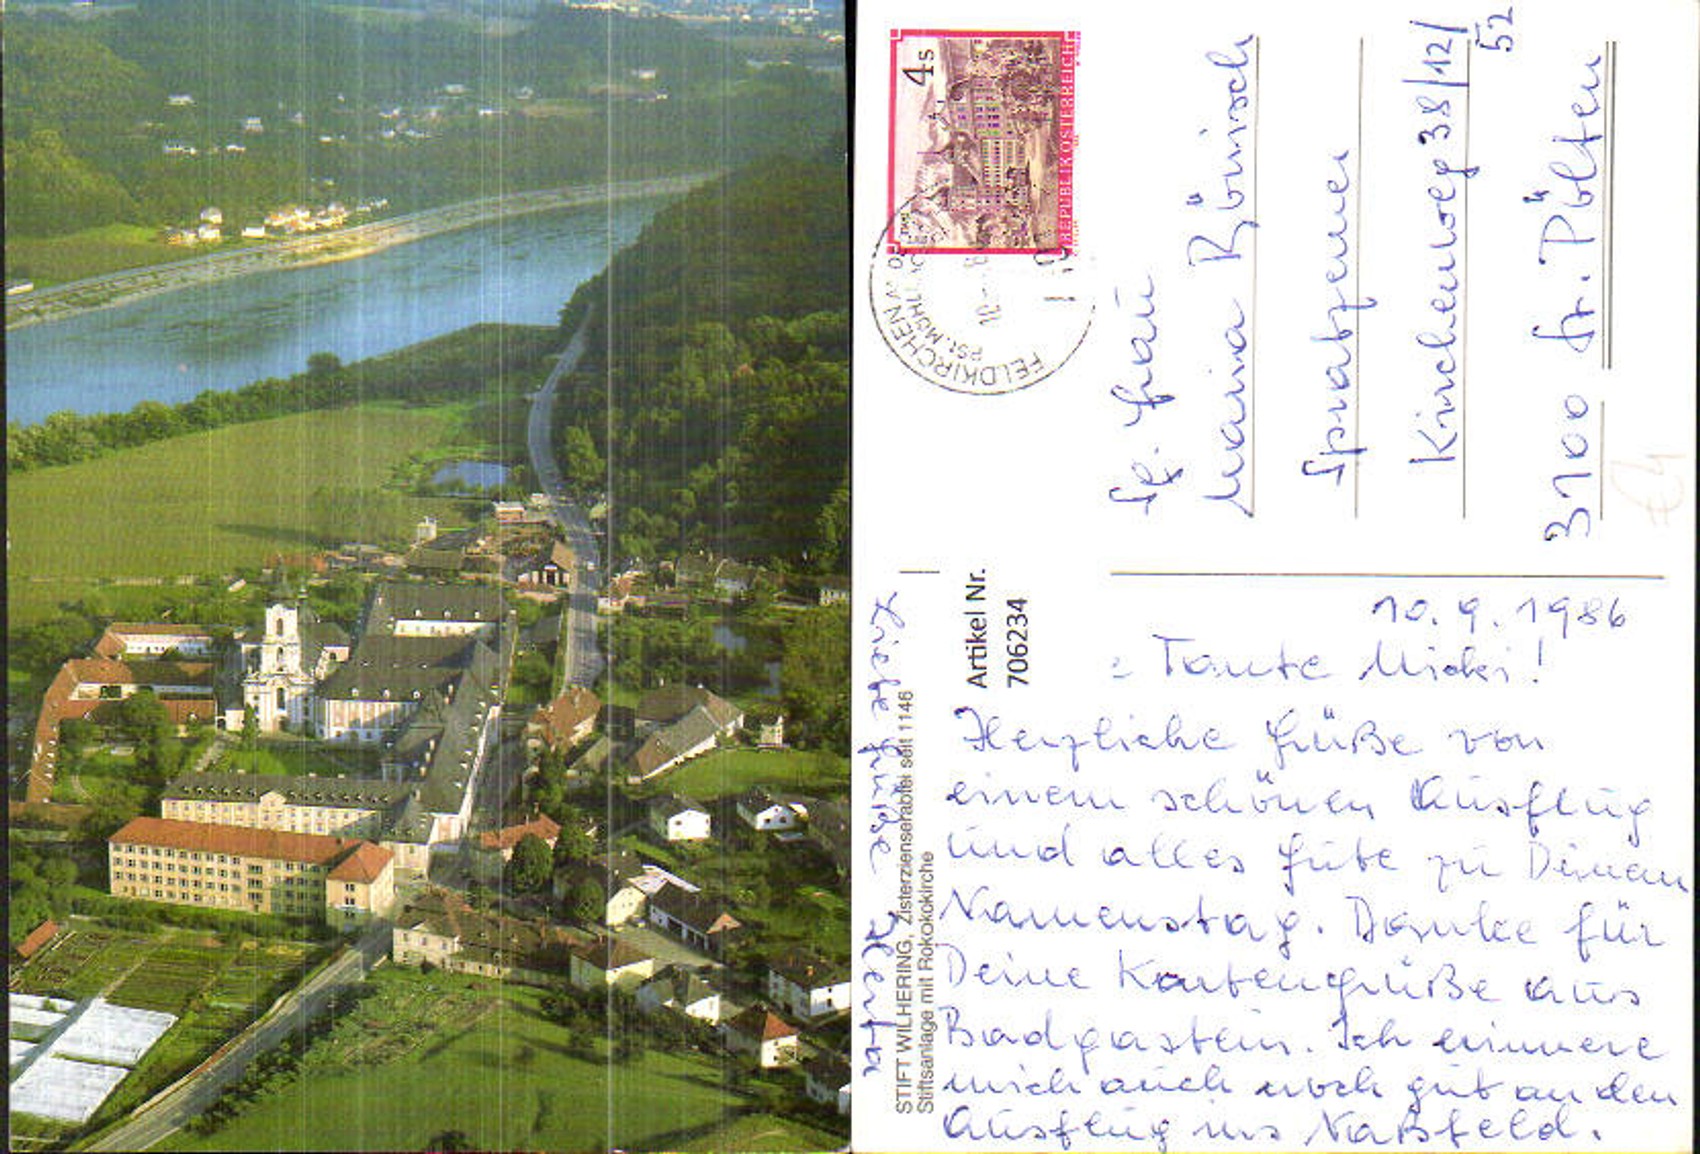 4 S
REPUBLIK ÖSTERREICH
FELDKIRCHEN
Fr. Frau
Maria Bönisch
Spratzerner
Kirchenweg 38/12/
52
3100 St. Pölten
Artikel Nr.
706234
STIFT WILHERING, Zisterzienserabtei seit 1146
Stiftsanlage mit Rokokokirche
10. 9. 1986
Tante Micki!
Herzliche Grüße von
einem schönen Ausflug
und alles Gute zu Deinem
Namenstag. Danke für
Deine Kartengrüße aus
Badgastein. Ich erinnere
mich auch noch gut an den
Ausflug ins Naßfeld.
Liebe Grüße Herta